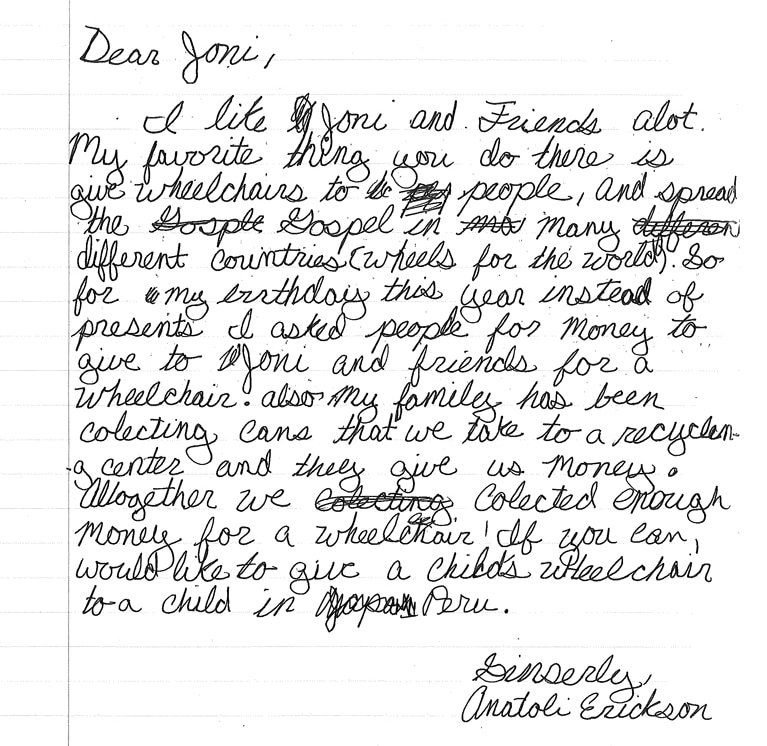 Dear Joni,
I like Joni and Friends alot.
My favorite thing you do there is
give wheelchairs to people, and spread
the Gospel in many
different countries (wheels for the world). So
for my birthday this year instead of
presents I asked people for money to
give to Joni and friends for a
wheelchair. also my familey has been
colecting cans that we take to a recyclen-
g center and they give us money.
Altogether we colected enough
money for a wheelchair! If you can,
would like to give a child's wheelchair
to a child in Peru.
Sinserly,
Anatoli Erickson